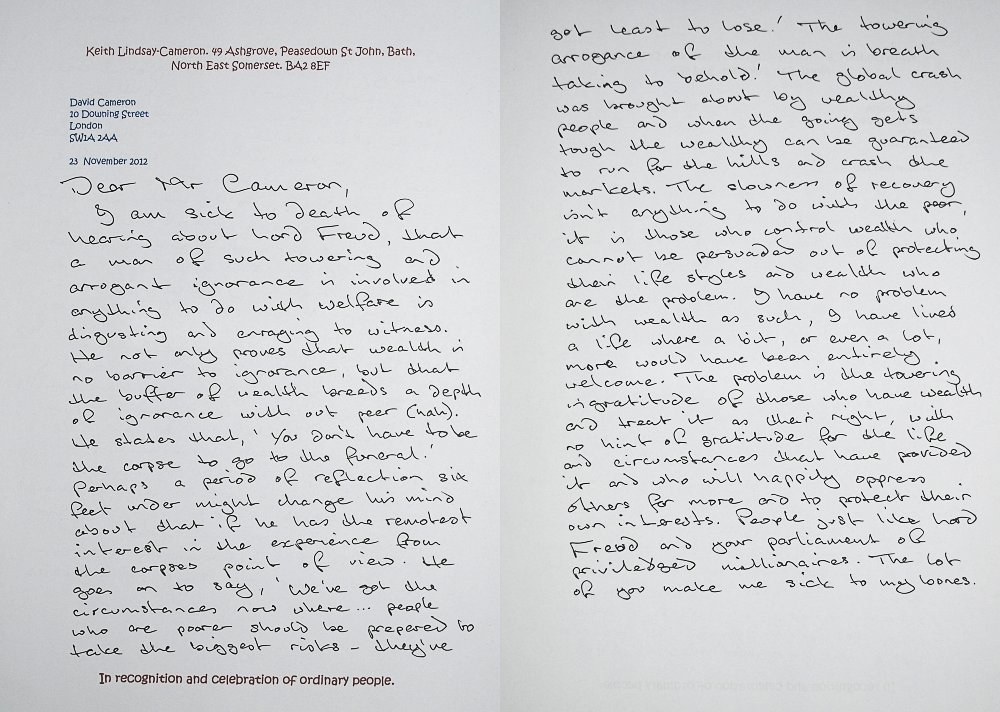 Keith Lindsay-Cameron. 49 Ashgrove, Peasedown St John, Bath,
North East Somerset. BA2 8EF
David Cameron
10 Downing Street
London
SW1A 2AA
23 November 2012
Dear Mr Cameron,
I am sick to death of
hearing about Lord Freud, that
a man of such towering and
arrogant ignorance is involved in
anything to do with welfare is
disgusting and enraging to witness.
He not only proves that wealth is
no barrier to ignorance, but that
the buffer of wealth breeds a depth
of ignorance with out peer (hah).
He states that, 'You don't have to be
the corpse to go to the funeral.'
Perhaps a period of reflection six
feet under might change his mind
about that if he has the remotest
interest in the experience from
the corpses point of view. He
goes on to say, 'We've got the
circumstances now where... people
who are poorer should be prepared to
take the biggest risks - they've
In recognition and celebration of ordinary people.
got least to lose.' The towering
arrogance of the man is breath
taking to behold! The global crash
was brought about by wealthy
people and when the going gets
tough the wealthy can be guaranteed
to run for the hills and crash the
markets. The slowness of recovery
isn't anything to do with the poor,
it is those who control wealth who
cannot be persuaded out of protecting
their life styles and wealth who
are the problem. I have no problem
with wealth as such, I have lived
a life where a bit, or even a lot,
more would have been entirely
welcome. The problem is the towering
ingratitude of those who have wealth
and treat it as their right, with
no hint of gratitude for the life
and circumstances that have provided
it and who will happily oppress
others for more and to protect their
own interests. People just like Lord
Freud and your parliament of
priviledged millionaires. The lot
of you make me sick to my bones.